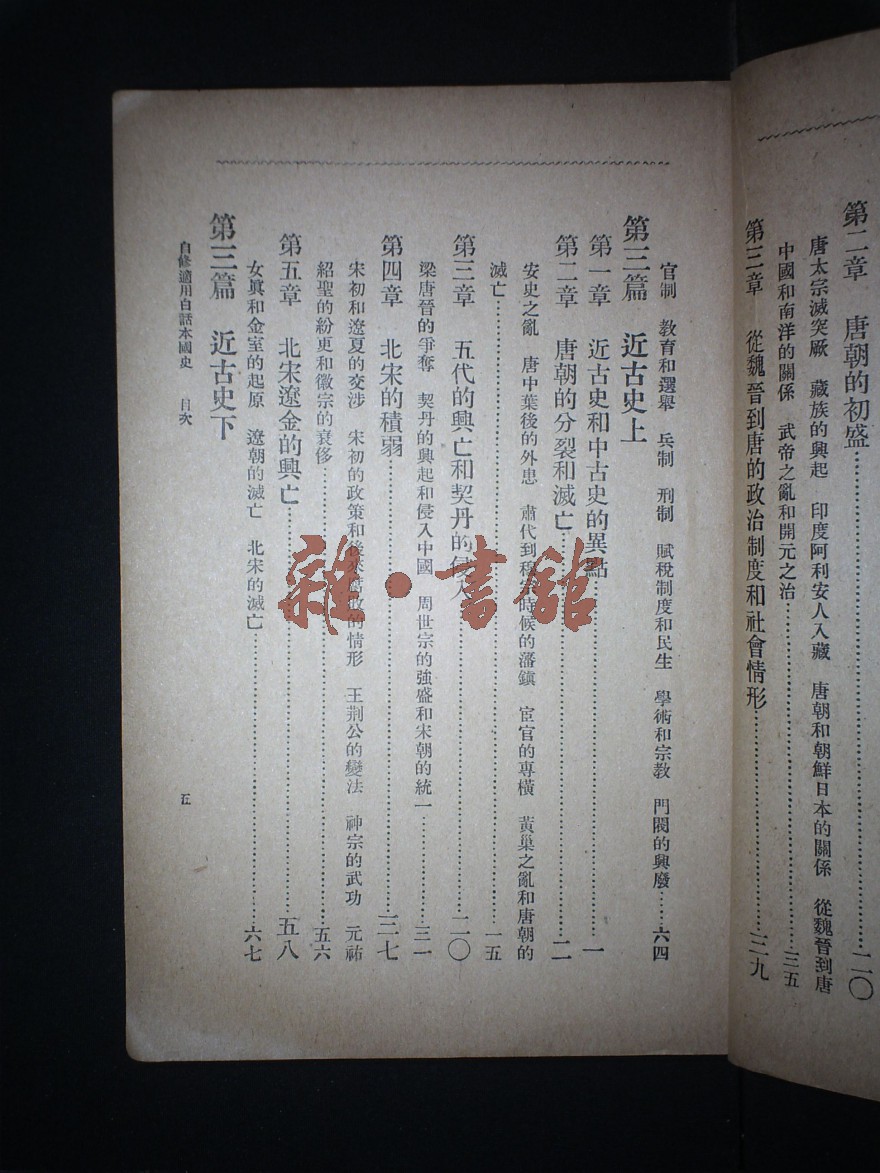 第二章　唐朝的初盛……二〇
唐太宗滅突厥　藏族的興起　印度阿利安人入藏　唐朝和朝鮮日本的關係　從魏晉到唐
中國和南洋的關係　武韋之亂和開元之治……三五
第三章　從魏晉到唐的政治制度和社會情形……三九
官制　教育和選舉　兵制　刑制　賦稅制度和民生　學術和宗教　門閥的興廢……六四
第三篇　近古史上
第一章　近古史和中古史的異點……一
第二章　唐朝的分裂和滅亡……二
安史之亂　唐中葉後的外患　肅代到穆宗時候的藩鎮　宦官的專橫　黃巢之亂和唐朝的
滅亡……一五
第三章　五代的興亡和契丹的侵入……二〇
梁唐晉的爭奪　契丹的興起和侵入中國　周世宗的強盛和宋朝的統一……三一
第四章　北宋的積弱……三七
宋初和遼夏的交涉　宋初的政策和後來腐敗的情形　王荆公的變法　神宗的武功　元祐
紹聖的紛更和徽宗的衰侈……五六
第五章　北宋遼金的興亡……五八
女眞和金室的起原　遼朝的滅亡　北宋的滅亡……六七
第三篇　近古史下
自修適用白話本國史　目次
五
雜·書館